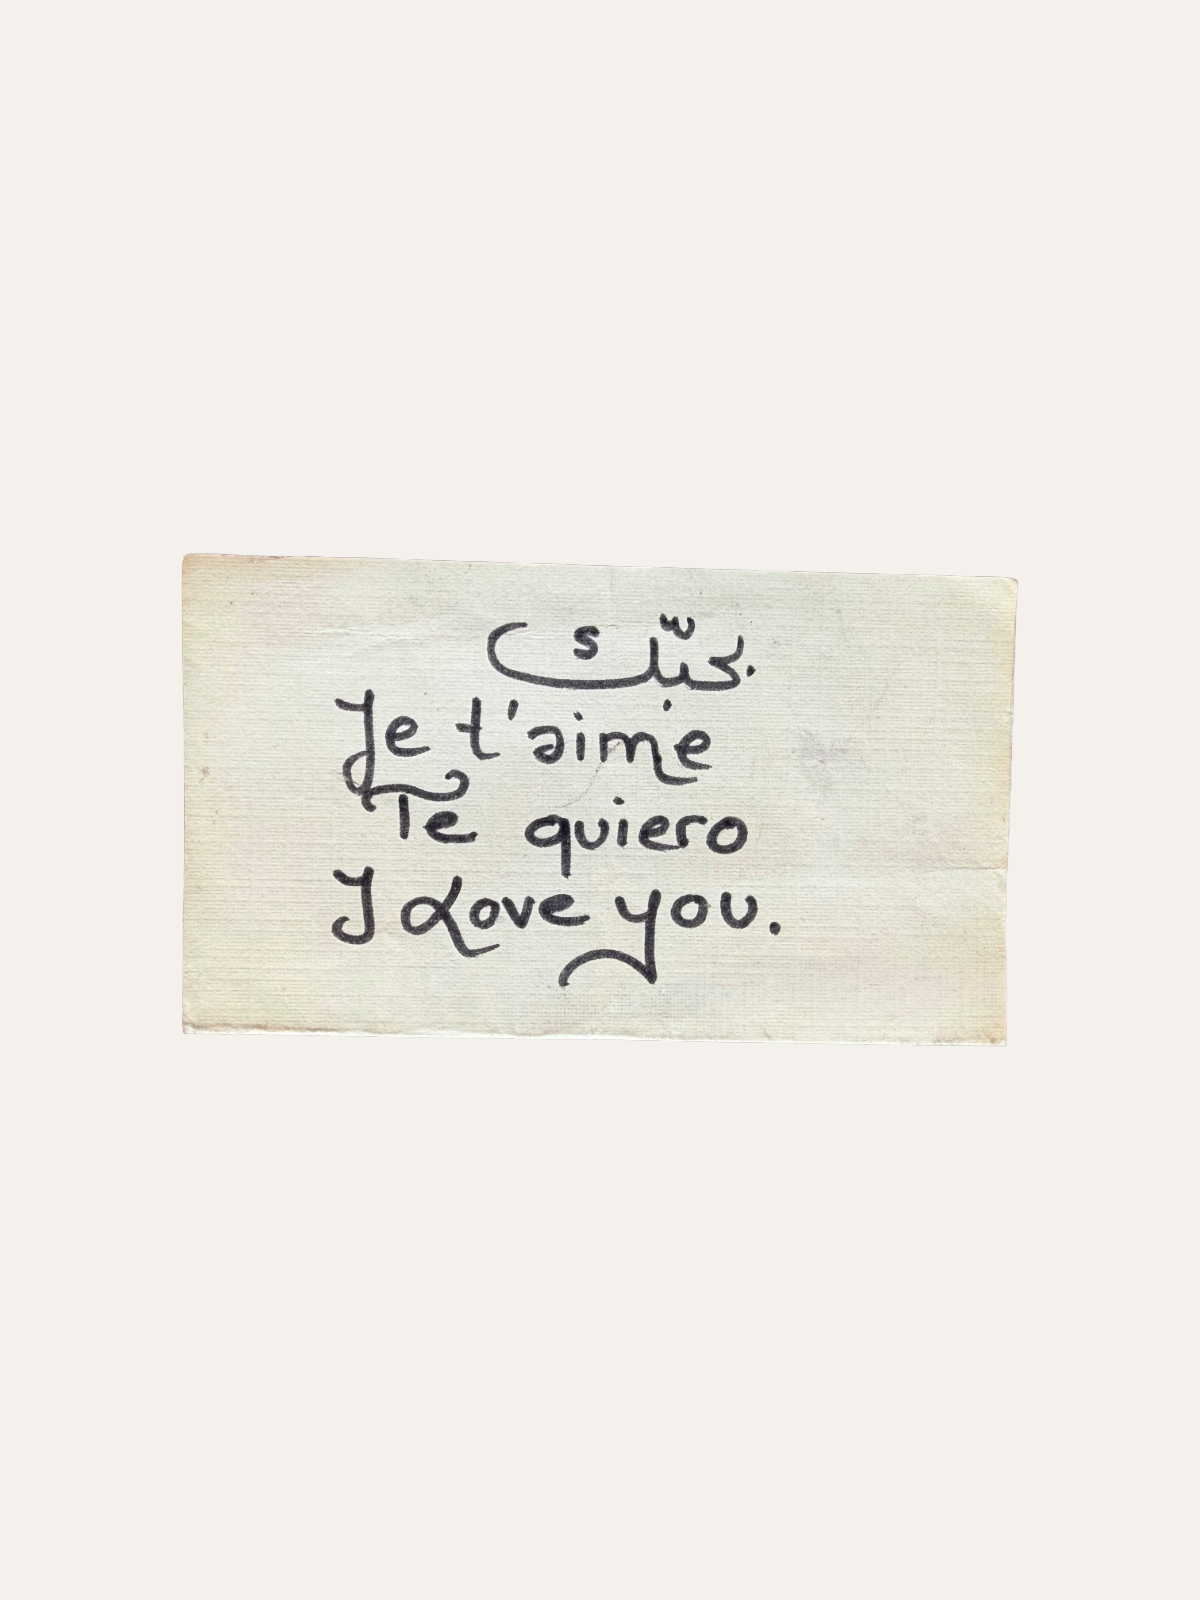 بحبّك
Je t'aime
Te quiero
I Love you.